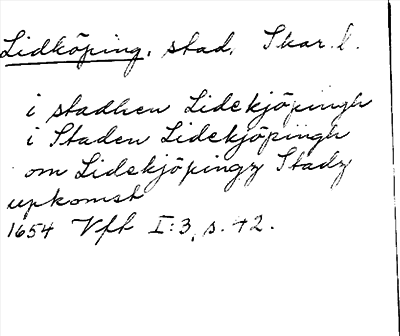 Lidköping, stad, Skar. l.
i stadhen Lidekjöpingh
i Staden Lidekjöpingh
om Lidekjöpingz Stadz
upkomst
1654 Vfh I:3, s. 42.